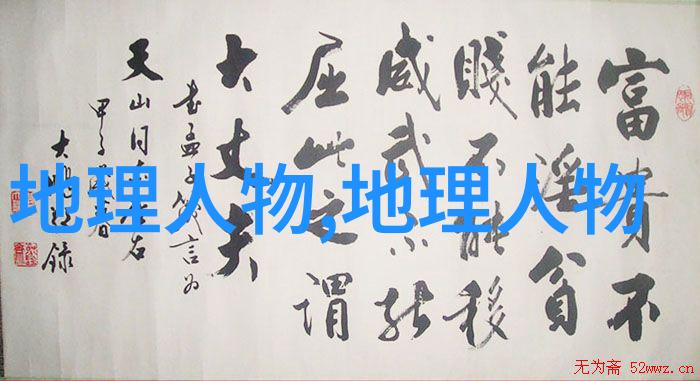 富贵不
能淫贫
贱不能移
威武不能
屈此之谓
大丈夫
书孟子箴言为
天山同志左右
甲子
大
录
地理人物,地理人物
无为斋 52wwz.cn